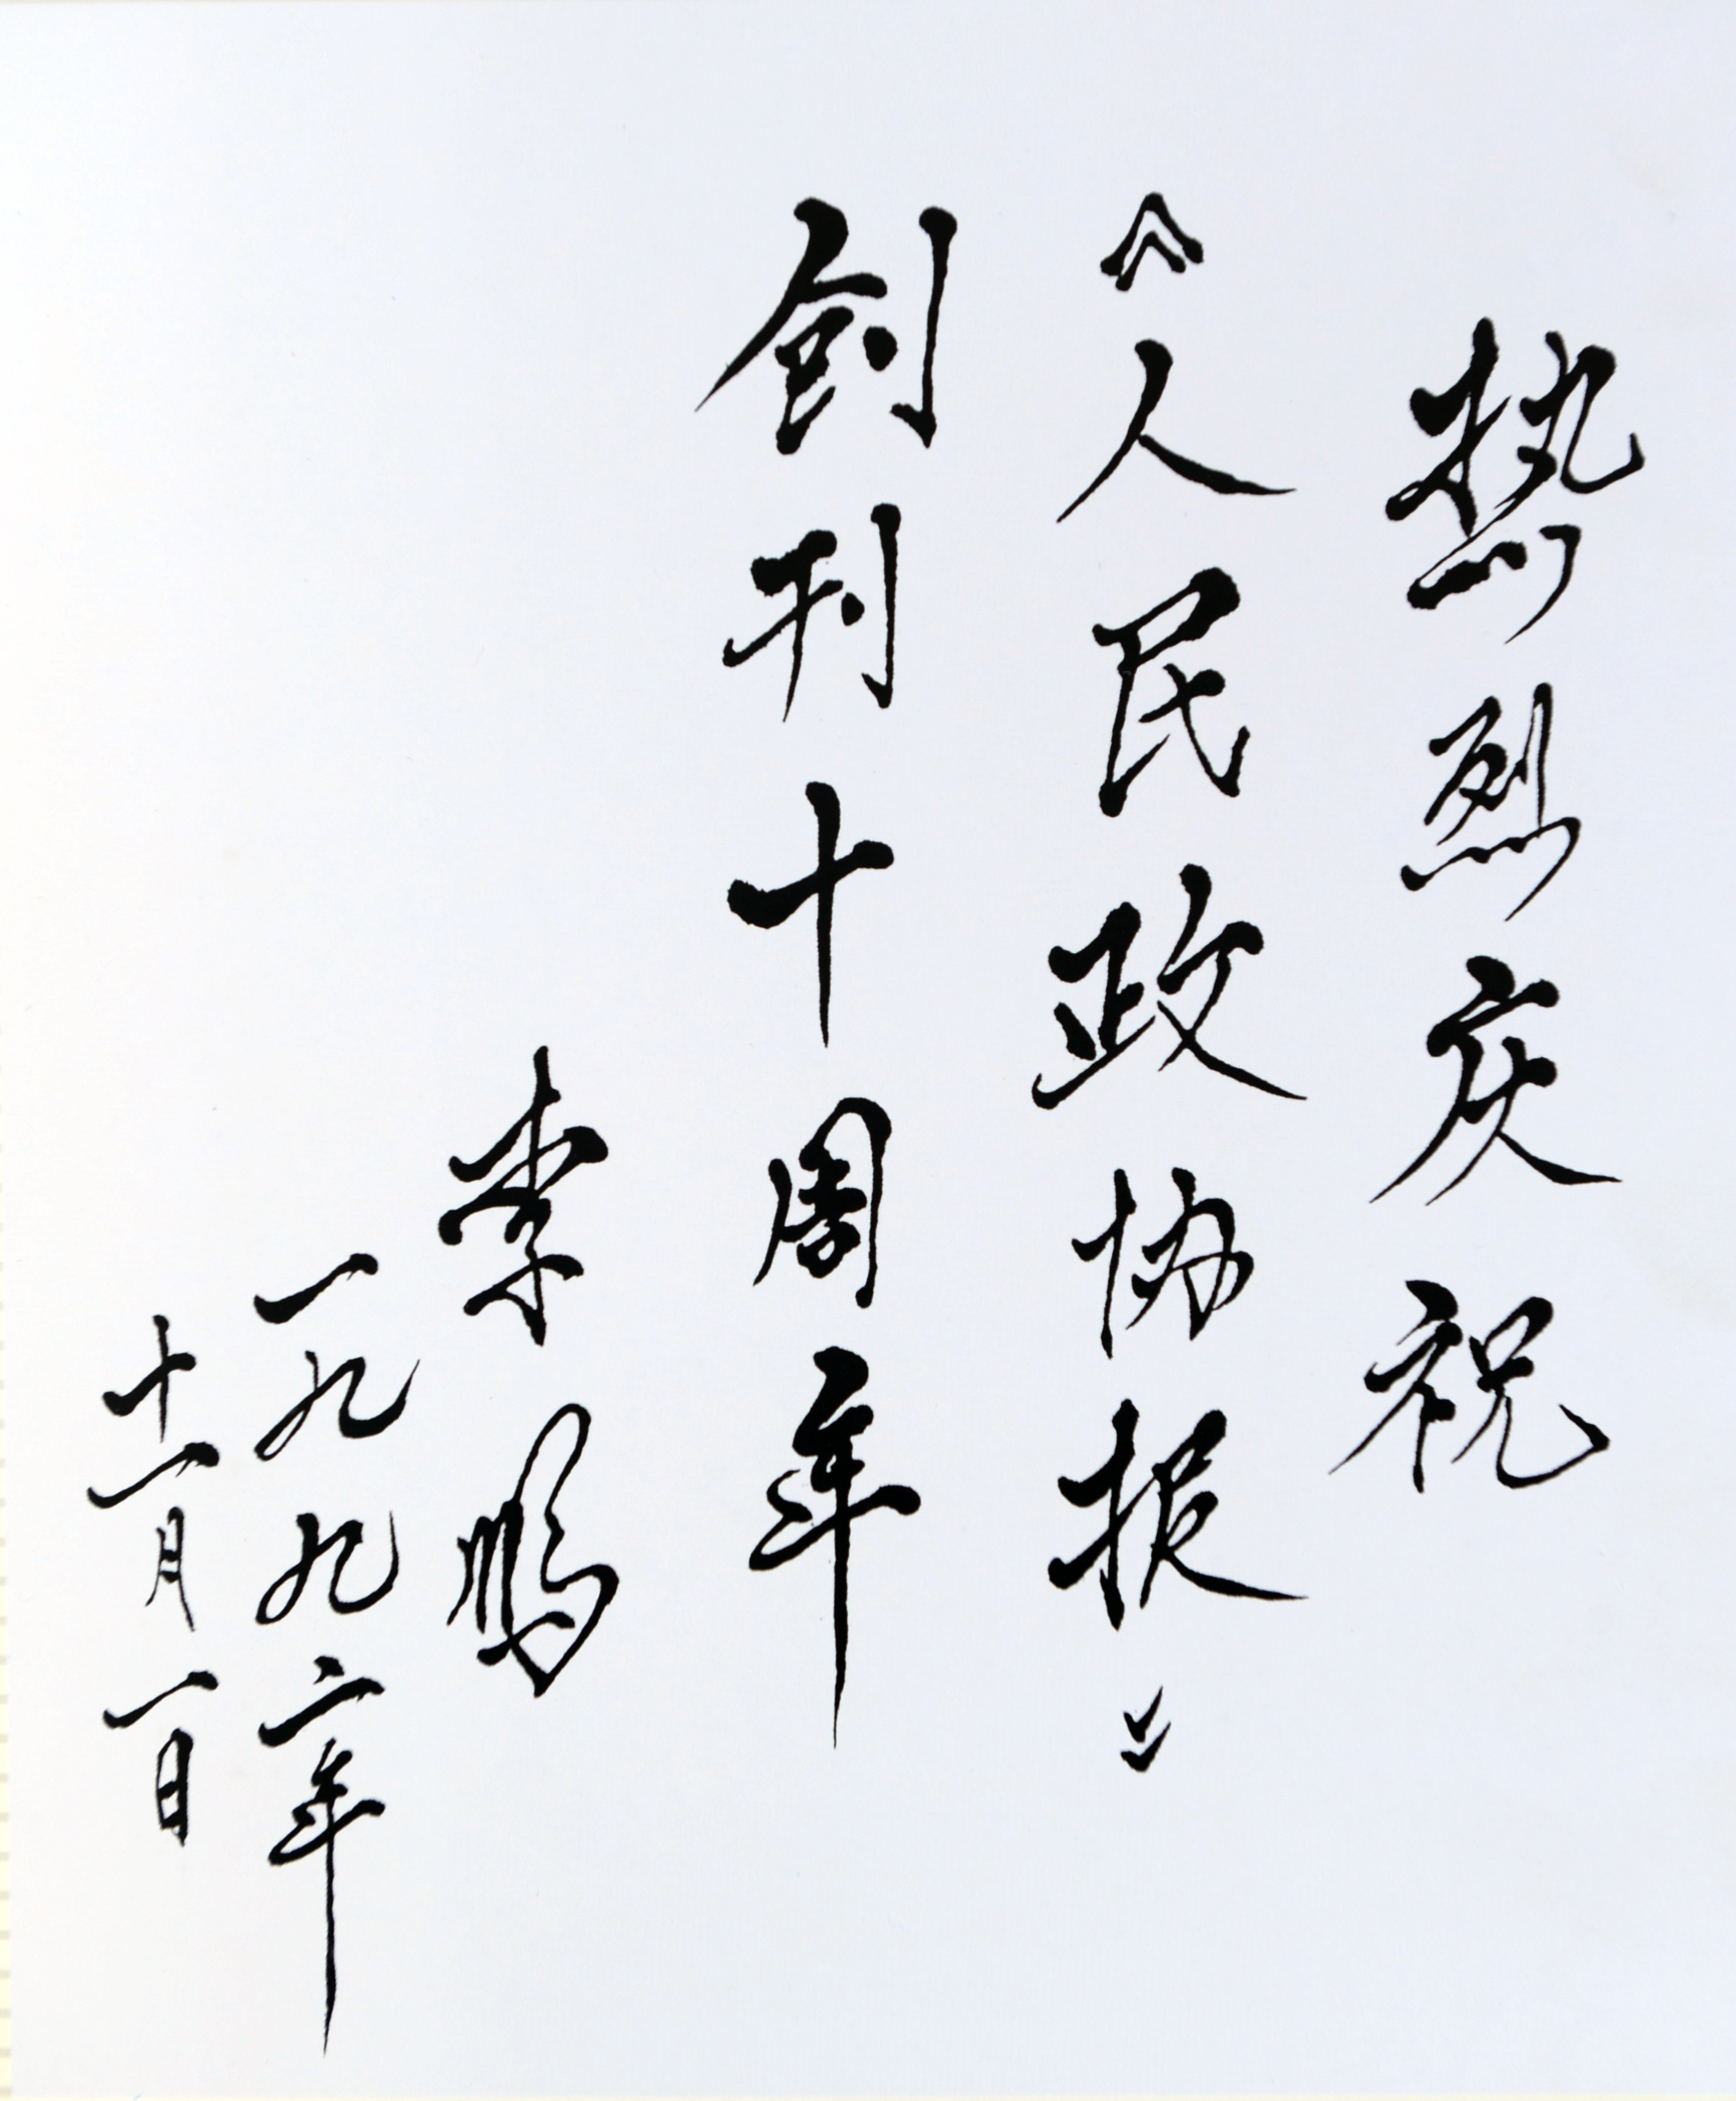 热烈庆祝
《人民政协报》
创刊十周年
李鹏
一九九二年
十一月一日